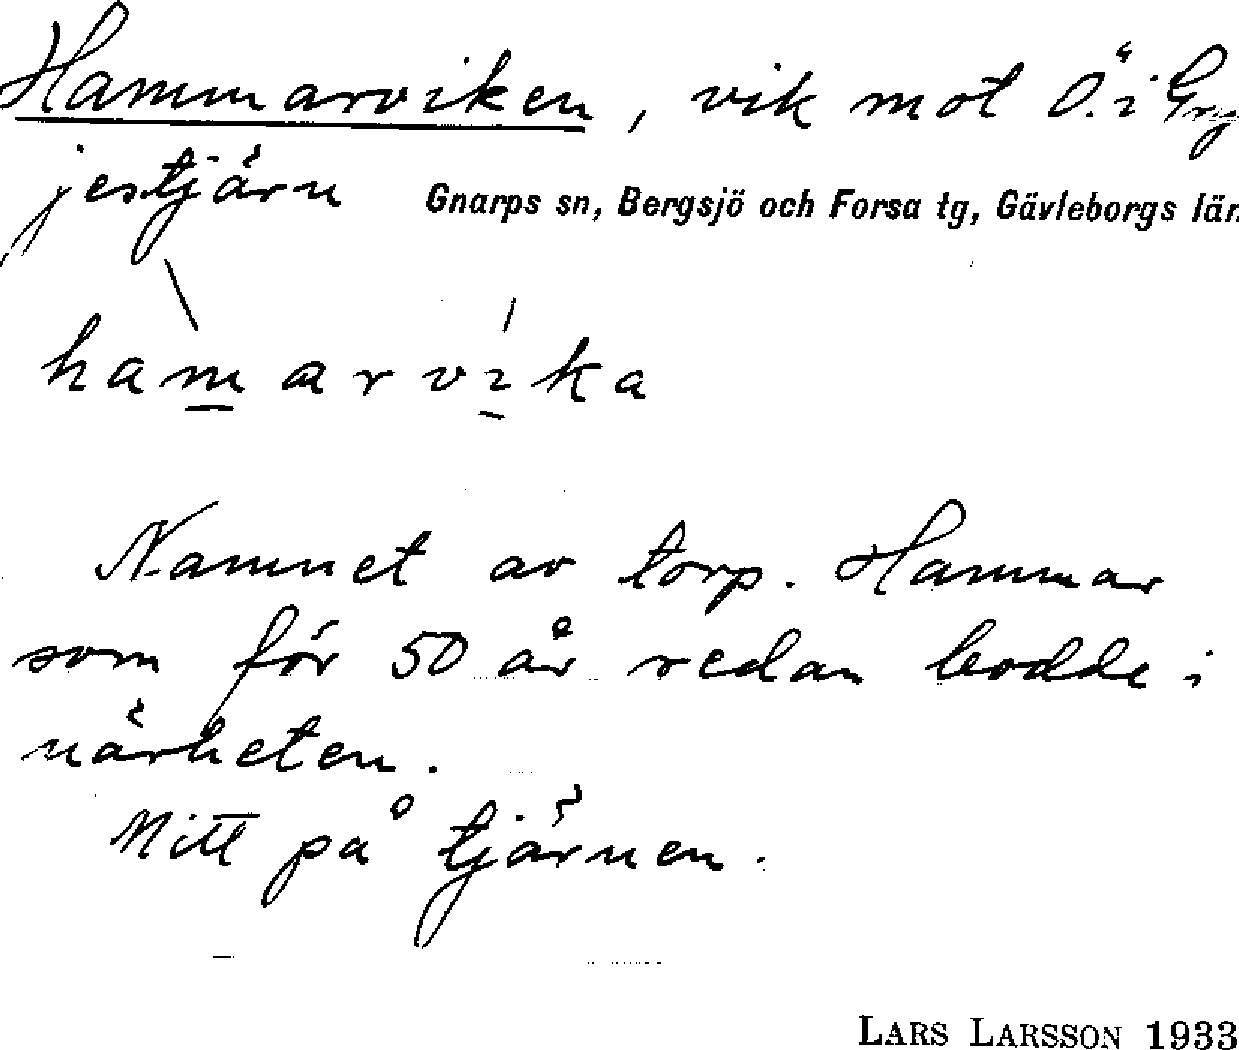 Hammarviken, vik mot Ö. i Gry
jestjärn Gnarps sn, Bergsjö och Forsa tg, Gävleborgs län
hamarvika
Namnet av torp. Hammar
som för 50 år sedan bodde i
närheten.
Mitt på tjärnen.
LARS LARSSON 1933